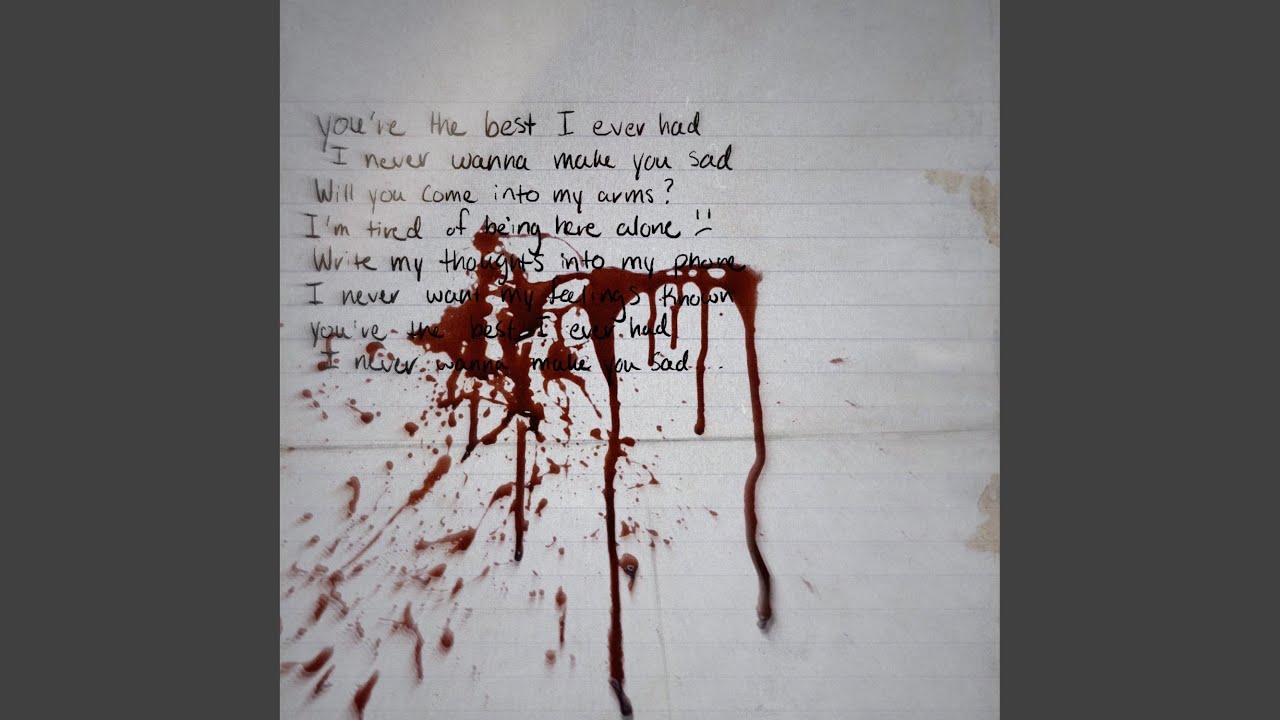 you're the best I ever had
I never wanna make you sad
Will you come into my arms?
I'm tired of being here alone :(
Write my thoughts into my phone
I never want my feelings known
you've the best I ever had
I never wanna make you sad...